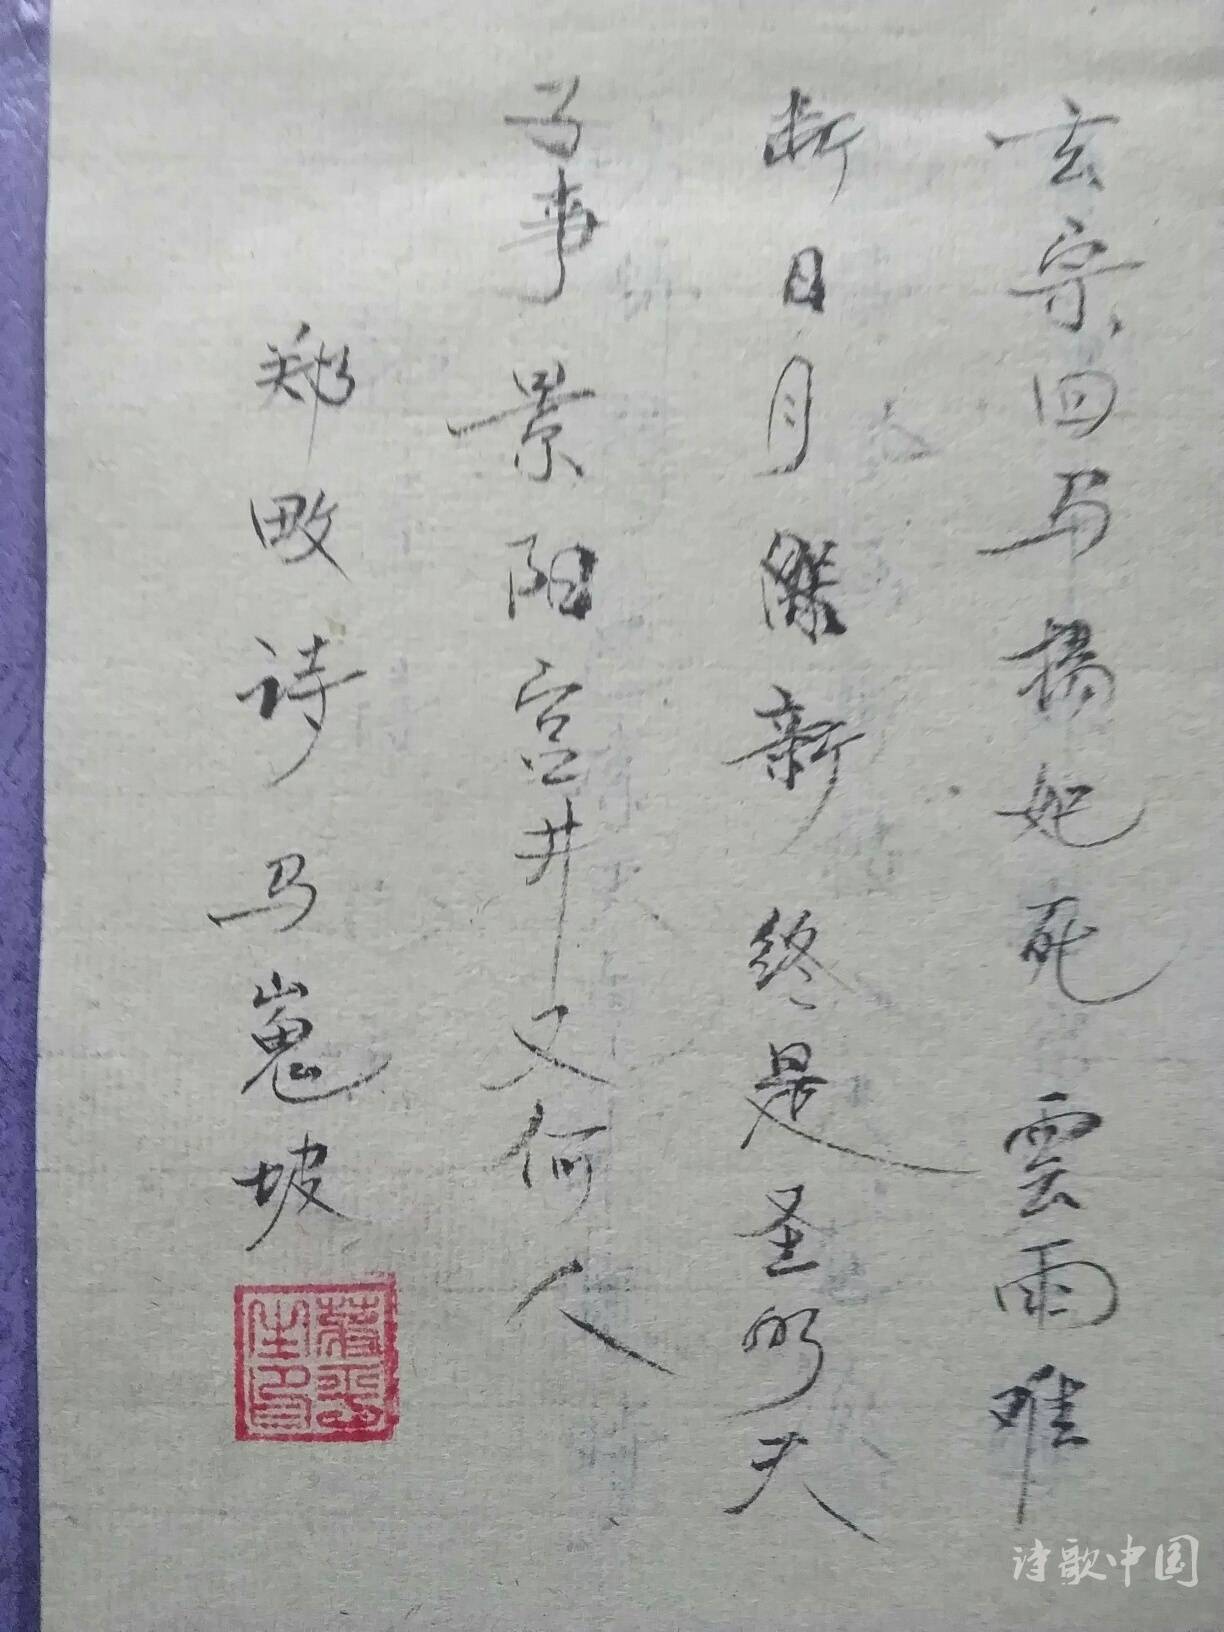 玄宗回马杨妃死雲雨难
断日月新终是圣明天
子事景阳宫井又何人
郑畋诗马嵬坡
诗歌中国